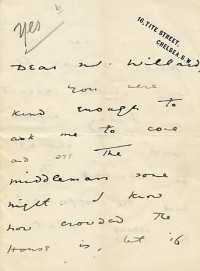 Yes
16, TITE STREET,
CHELSEA. S.W.
Dear Mr. Willard,
You were
kind enough to
ask me to come
and see The
middleman some
night. I know
how crowded the
House is, but if